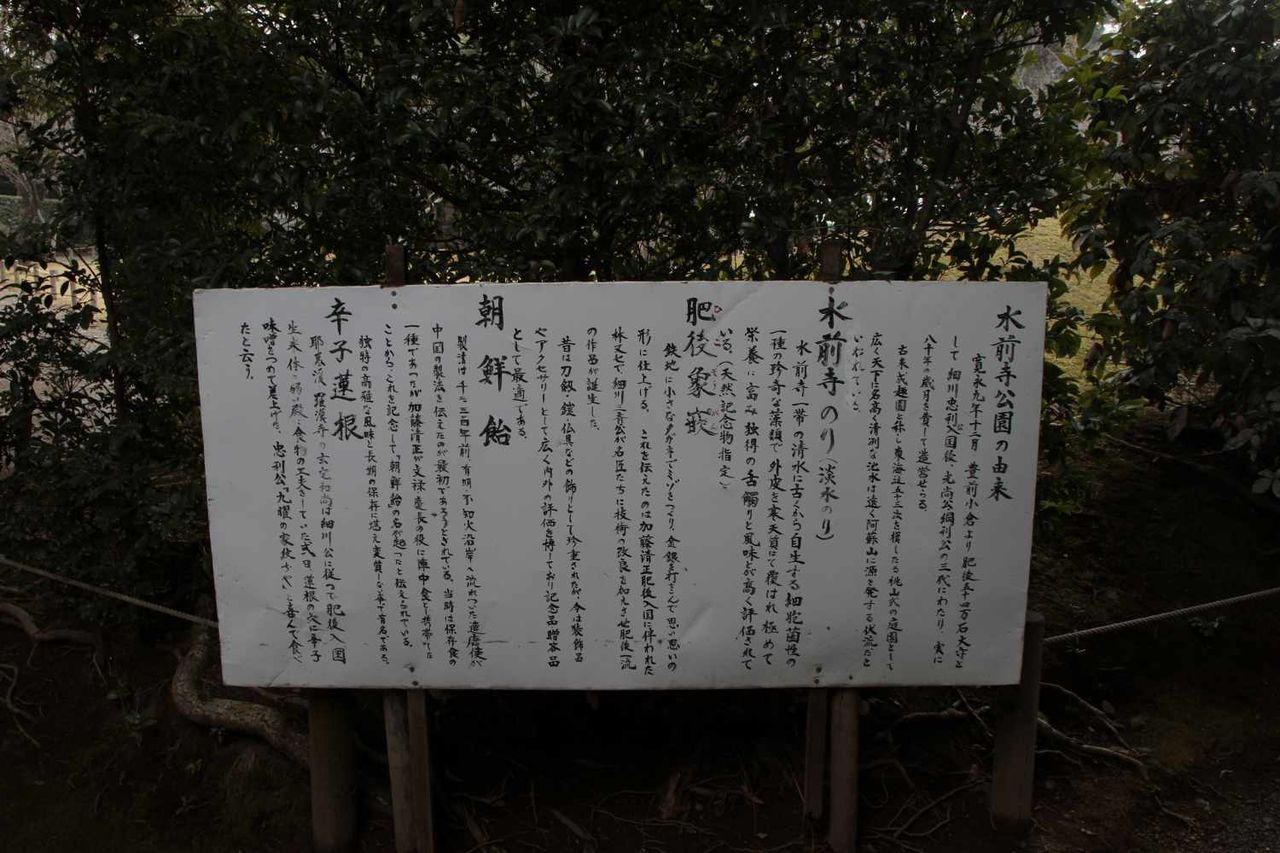 水前寺公園の由来
寛永九年十二月 豊前小倉より肥後五十四万石大守と
して細川忠利入国後、光尚公綱利公の三代にわたり、実に
八十年の歳月を費して造営せらる
古来成趣園と称し東海道五十三次を模したる桃山式の庭園として
広く天下に名高く清冽な池水は遠く阿蘇山に源を発する伏流だと
いわれている。
水前寺のり(淡水のり)
水前寺一帯の清水に古くから自生する細胞菌性の
一種の珍奇な藻類で外皮を寒天質にて覆はれ極めて
栄養に富み独得の舌触りと風味とが高く評価されて
いる、(天然記念物指定)
肥後象嵌
鉄地に小さなタガネでミゾをつくり、金銀を打こんで思い思いの
形に仕上げる、これを伝えたのは加藤清正肥後入国に伴われた
林又七で細川三斎公が名匠たちに技術の改良を加えさせ肥後一流
の作品が誕生した。
昔は刀剣・鎧・仏具などの飾りとして珍重されたが、今は装飾品
やアクセサリーとして広く内外の評価を博しており記念品贈答品
として最適である。
朝鮮飴
製法は千二三百年前有明、不知火沿岸へ流れついた遣唐使が
中国の製法を伝えたのが最初であろうとされている。当時は保存食の
一種であったが加藤清正が文禄慶長の役に陣中食として携帯した
ことから、これを記念して、「朝鮮飴」の名が起ったと伝えられている。
独特の高雅な風味と長期の保存に堪え変質しない事で有名である。
辛子蓮根
耶馬渓、羅漢寺の玄宅和尚は細川公に従って肥後入国
生来体の弱い殿に食べ物の工夫をしていた或る日、蓮根の穴に辛子
味噌をつめて差上げた、忠利公「九曜の家紋ぢや」と喜んで食べ
たと云う。